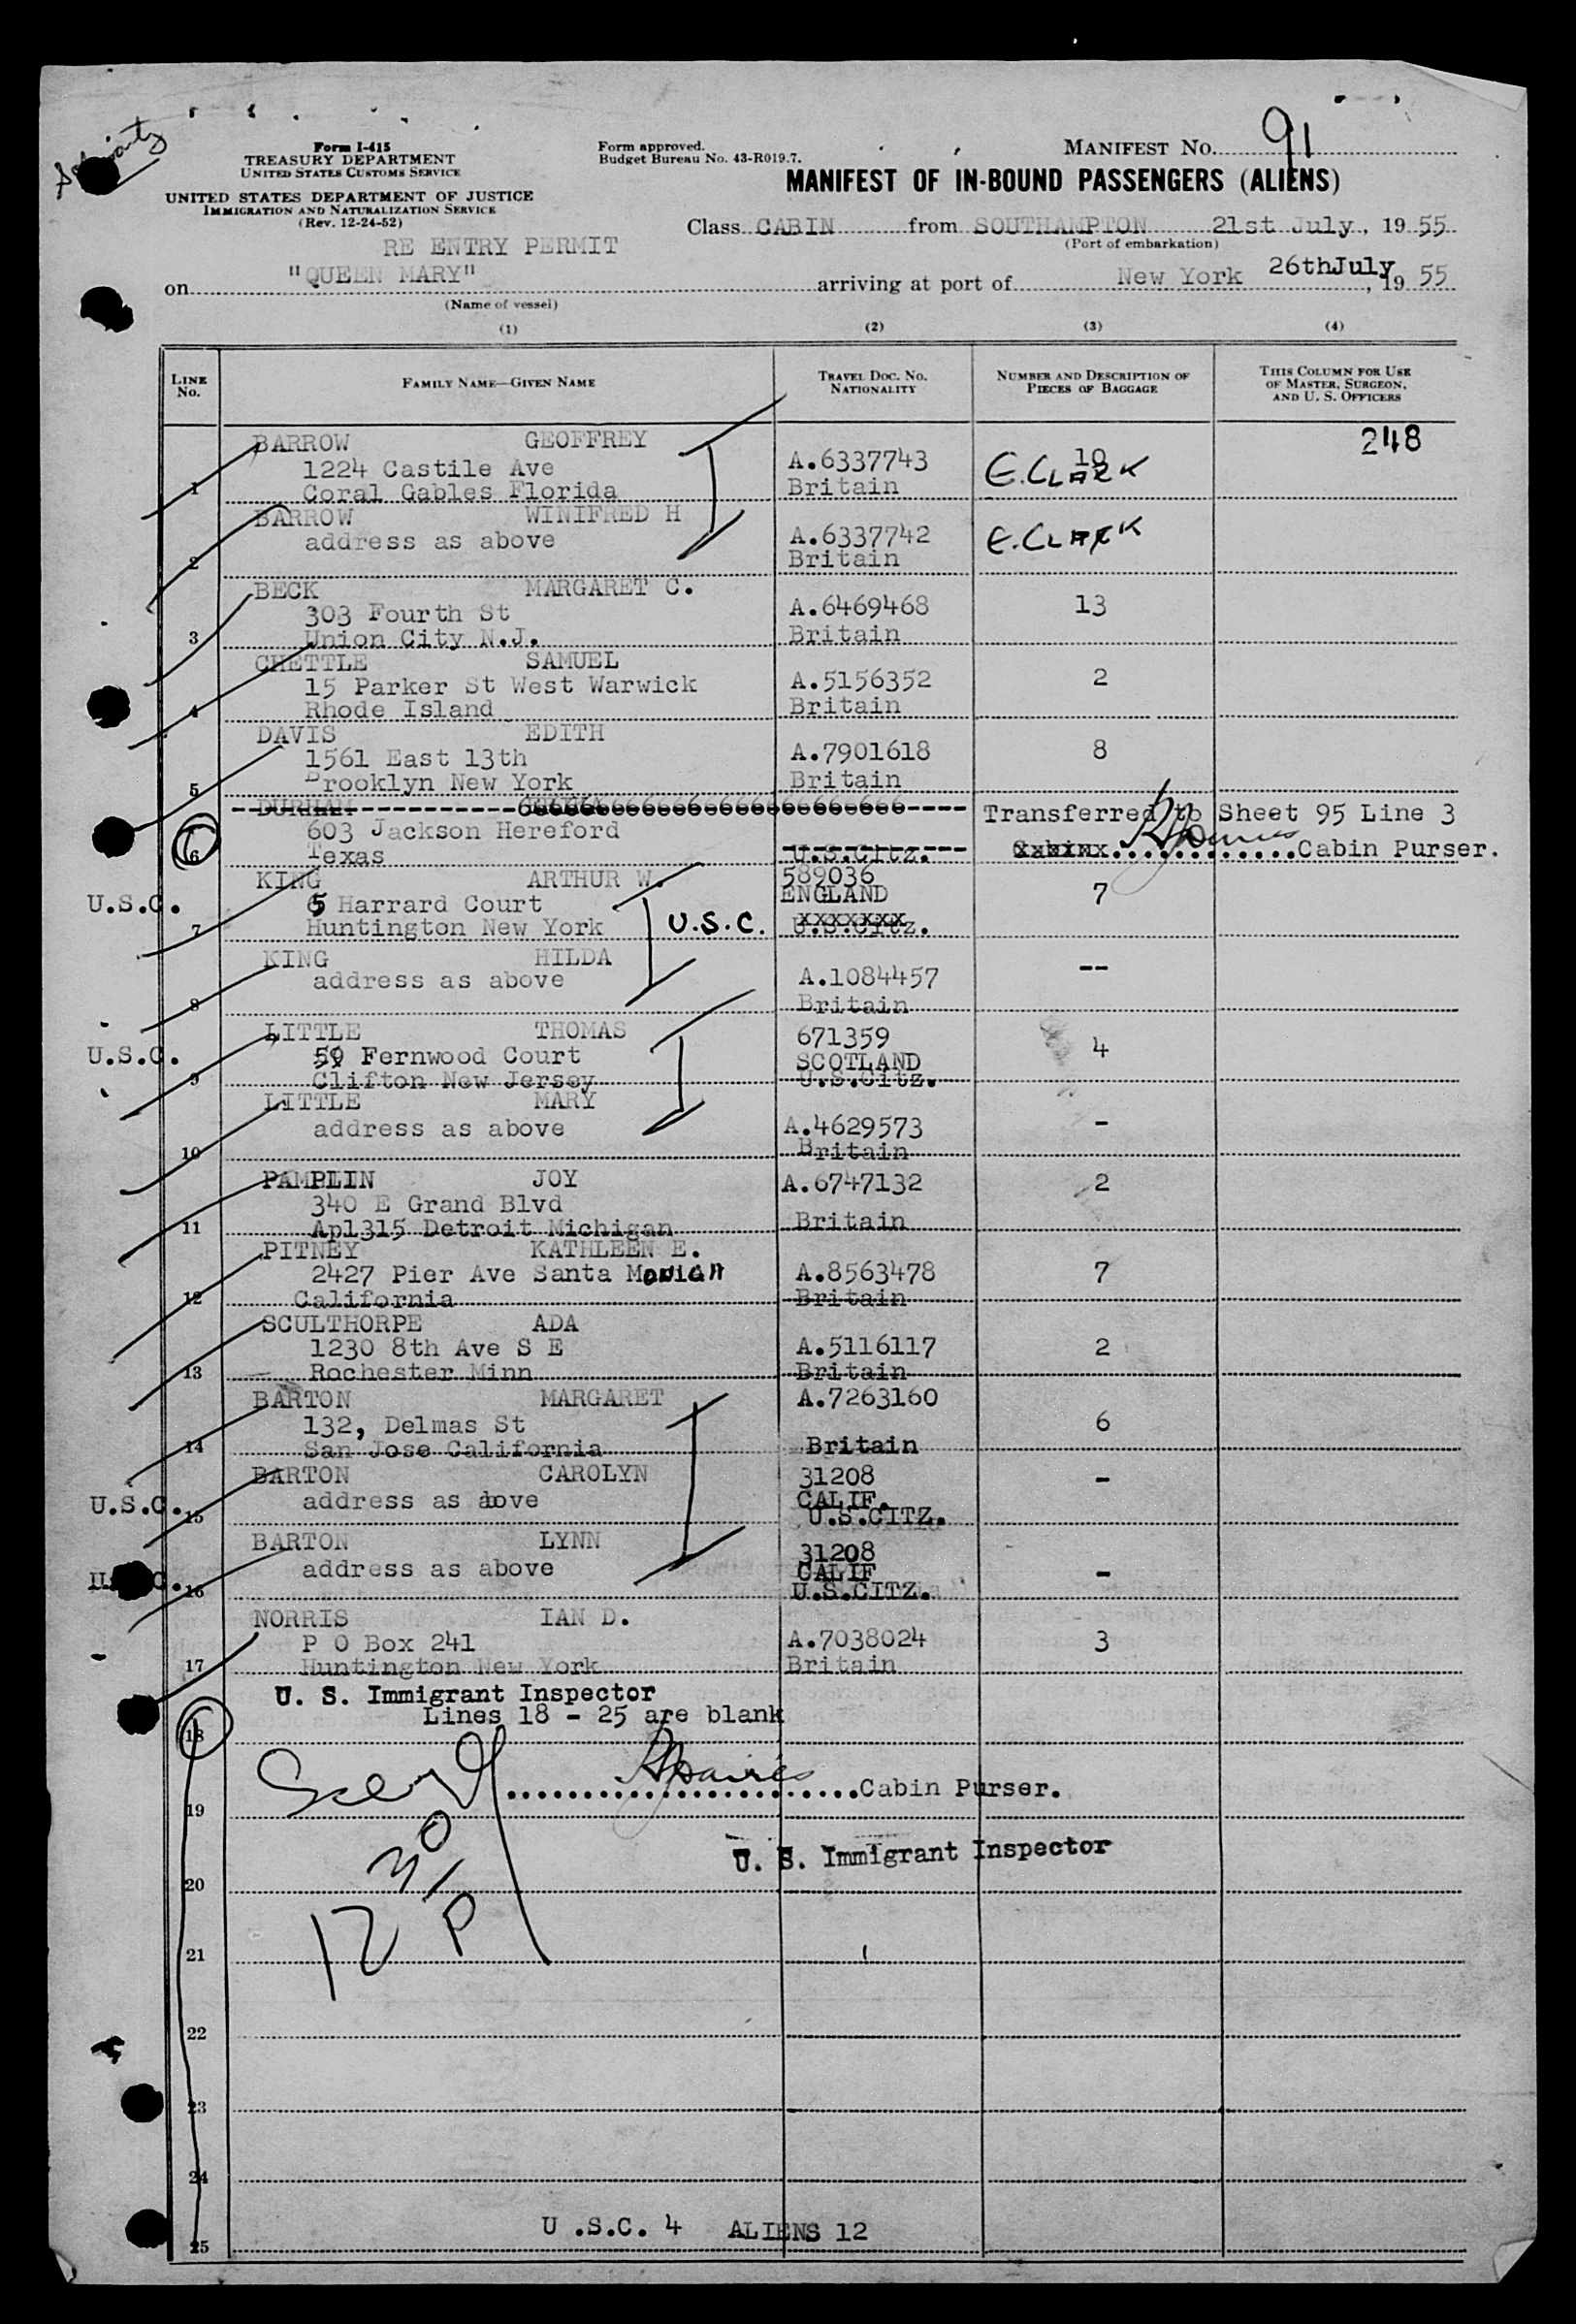 Form I-415
TREASURY DEPARTMENT
UNITED STATES CUSTOMS SERVICE
UNITED STATES DEPARTMENT OF JUSTICE
IMMIGRATION AND NATURALIZATION SERVICE
(Rev. 12-24-52)
Form approved.
Budget Bureau No. 43-R019.7.
MANIFEST NO. 91
MANIFEST OF IN-BOUND PASSENGERS (ALIENS)
Class CABIN from SOUTHAMPTON 21st July, 19 55
(Port of embarkation)
RE ENTRY PERMIT
on "QUEEN MARY" arriving at port of New York 26thJuly, 19 55
(Name of vessel)
(1) (2) (3) (4)
LINE No. FAMILY NAME—GIVEN NAME TRAVEL DOC. NO. NATIONALITY NUMBER AND DESCRIPTION OF PIECES OF BAGGAGE THIS COLUMN FOR USE OF MASTER, SURGEON, AND U. S. OFFICERS
248
BARROW GEOFFREY
1224 Castile Ave A.6337743 10 E.CLARK
1 Coral Gables Florida Britain
BARROW WINIFRED H
address as above A.6337742 E.CLARK
2 Britain
BECK MARGARET C.
303 Fourth St A.6469468 13
3 Union City N.J. Britain
CHETTLE SAMUEL
15 Parker St West Warwick A.5156352 2
4 Rhode Island Britain
DAVIS EDITH
1561 East 13th A.7901618 8
5 Brooklyn New York Britain
DURHAM Transferred to Sheet 95 Line 3
603 Jackson Hereford
6 Texas U.S.Citz. Cabin Purser.
KING ARTHUR W. 589036
U.S.C. 5 Harrard Court ENGLAND 7
7 Huntington New York U.S.C. xxxxxxx U.S.Citz.
KING HILDA
address as above A.1084457 --
8 Britain
LITTLE THOMAS 671359
U.S.C. 59 Fernwood Court SCOTLAND 4
9 Clifton New Jersey U.S.Citz.
LITTLE MARY
address as above A.4629573 -
10 Britain
PAMPLIN JOY A.6747132 2
340 E Grand Blvd
11 Ap1315 Detroit Michigan Britain
PITNEY KATHLEEN E.
2427 Pier Ave Santa MONICA A.8563478 7
12 California Britain
SCULTHORPE ADA
1230 8th Ave S E A.5116117 2
13 Rochester Minn Britain
BARTON MARGARET A.7263160
132, Delmas St 6
14 San Jose California Britain
BARTON CAROLYN 31208 -
U.S.C. address as above CALIF.
15 U.S.CITZ.
BARTON LYNN 31208
address as above CALIF -
U.S.C. 16 U.S.CITZ.
NORRIS IAN D.
P O Box 241 A.7038024 3
17 Huntington New York Britain
U. S. Immigrant Inspector
Lines 18 - 25 are blank
18
Cabin Purser.
19
12 30 P
U. S. Immigrant Inspector
20
21
22
23
24
U .S.C. 4 ALIENS 12
25